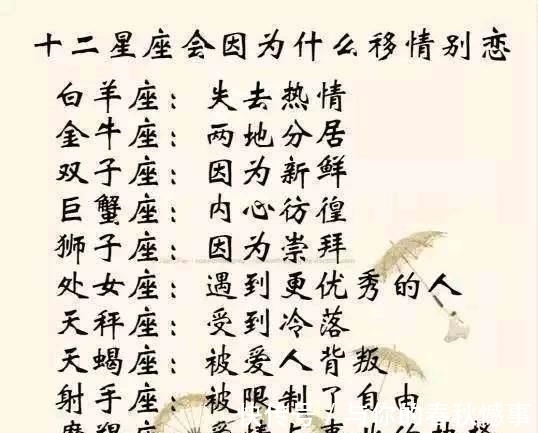 十二星座会因为什么移情别恋
白羊座：失去热情
金牛座：两地分居
双子座：因为新鲜
巨蟹座：内心彷徨
狮子座：因为崇拜
处女座：遇到更优秀的人
天秤座：受到冷落
天蝎座：被爱人背叛
射手座：被限制了自由